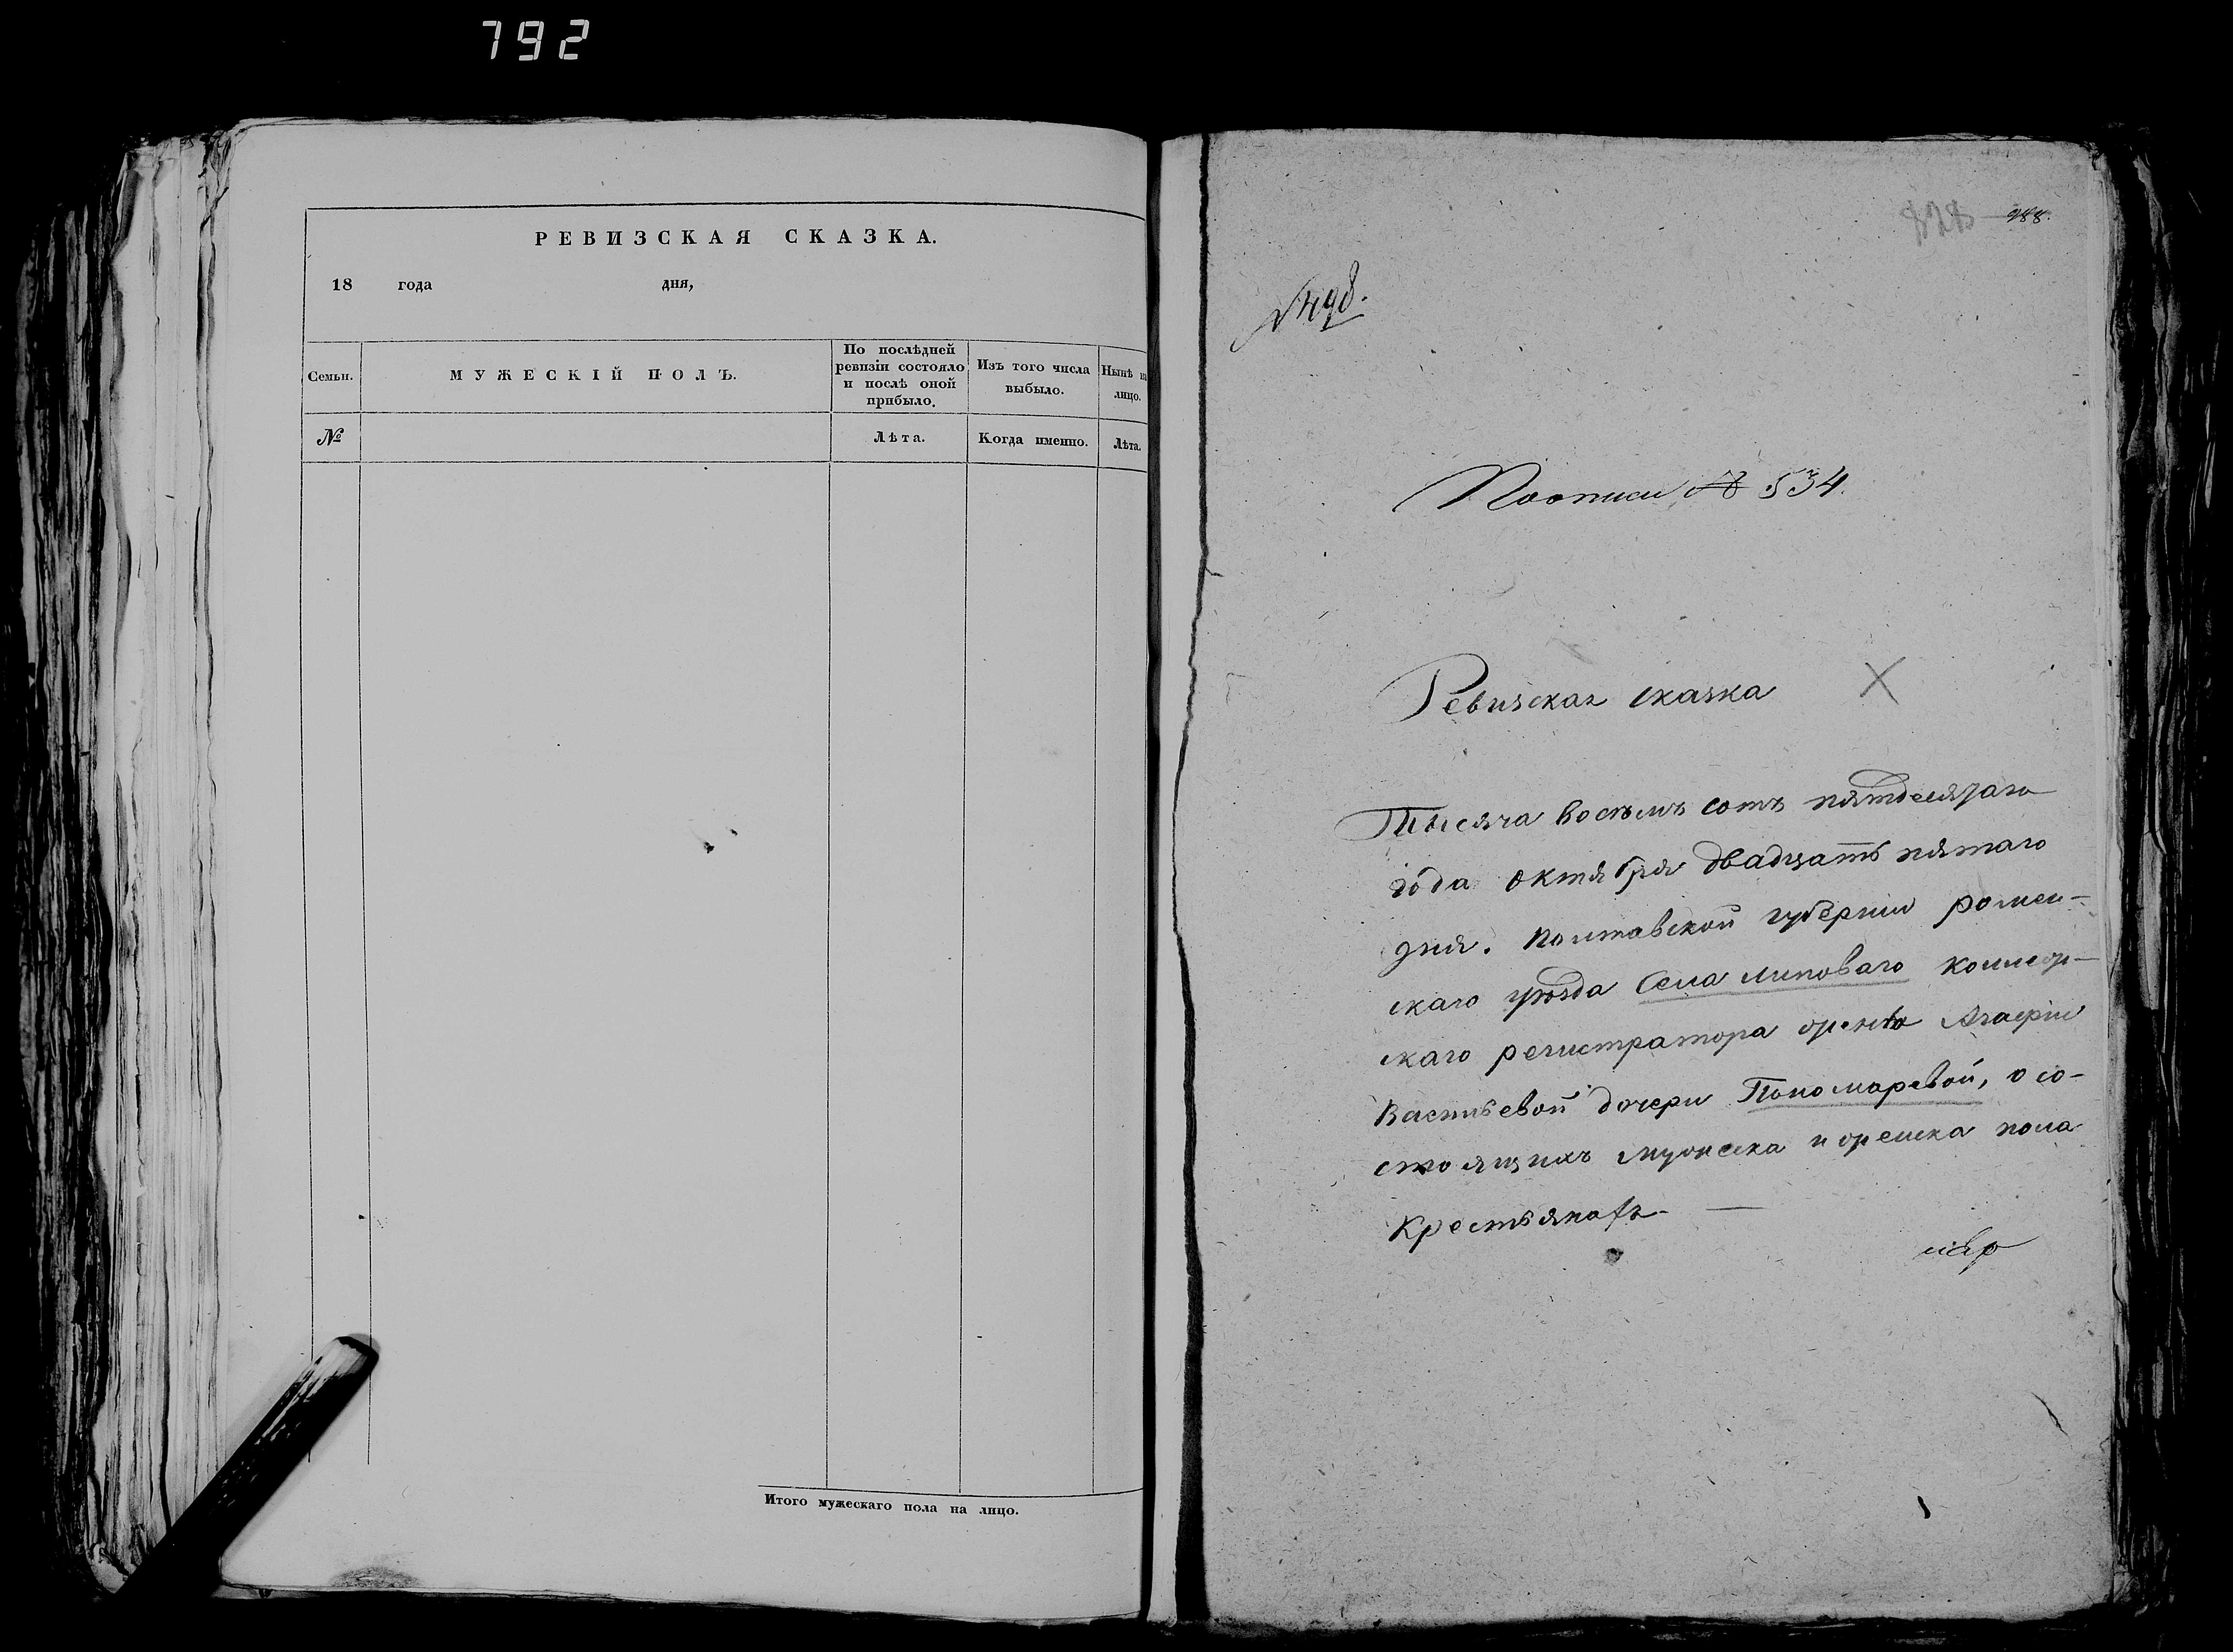 792
РЕВИЗСКАЯ СКАЗКА.
18 года дня,
Семьи.
МУЖЕСКІЙ ПОЛЪ.
По послѣдней
ревизіи состояло
и послѣ оной
прибыло.
Изъ того числа
выбыло.
Нынѣ
лицо.
№
Лѣта.
Когда именно.
Лѣта.
Итого мужескаго пола на лицо.
988.
№ 498.
По описи № 534.
Ревизская сказка
Тысяча восемъ сотъ пятдесятаго
года октября двадцать пятаго
дня. Полтавской губерніи ромен-
скаго уѣзда Села липоваго колеж-
скаго регистратора жены Агафіи
Васильевой дочери Пономаревой, о со-
стоящихъ мужеска и женска пола
Крестьянахъ